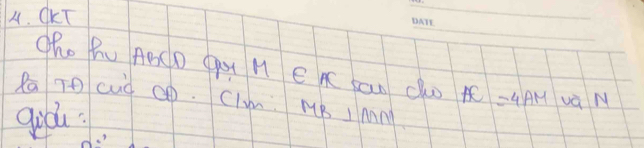 4. CKT
DATE
Cho hv ABCD gọi M ∈ AC sao cho AC = 4AM và N
là TĐ của CD. C/m: MB ⊥ MN.
giải: